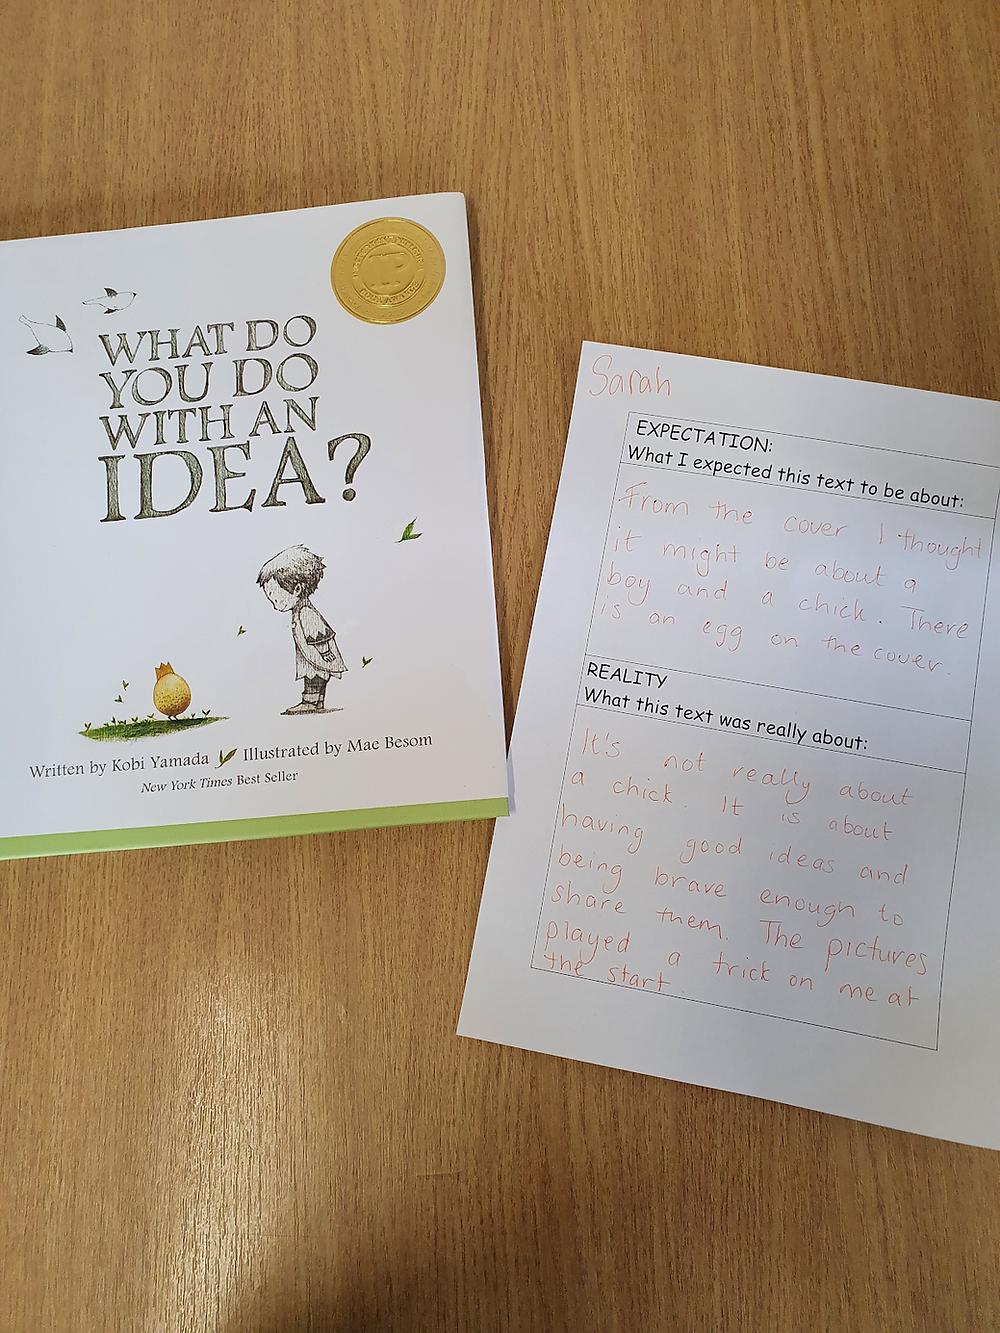 WHAT DO
YOU DO
WITH AN
IDEA?
Written by Kobi Yamada Illustrated by Mae Besom
New York Times Best Seller
Sarah
EXPECTATION:
What I expected this text to be about:
From the cover I thought
it might be about a
boy and a chick. There
is an egg on the cover.
REALITY
What this text was really about:
It's not really about
a chick. It is about
having good ideas and
being brave enough to
share them. The pictures
played a trick on me at
the start.